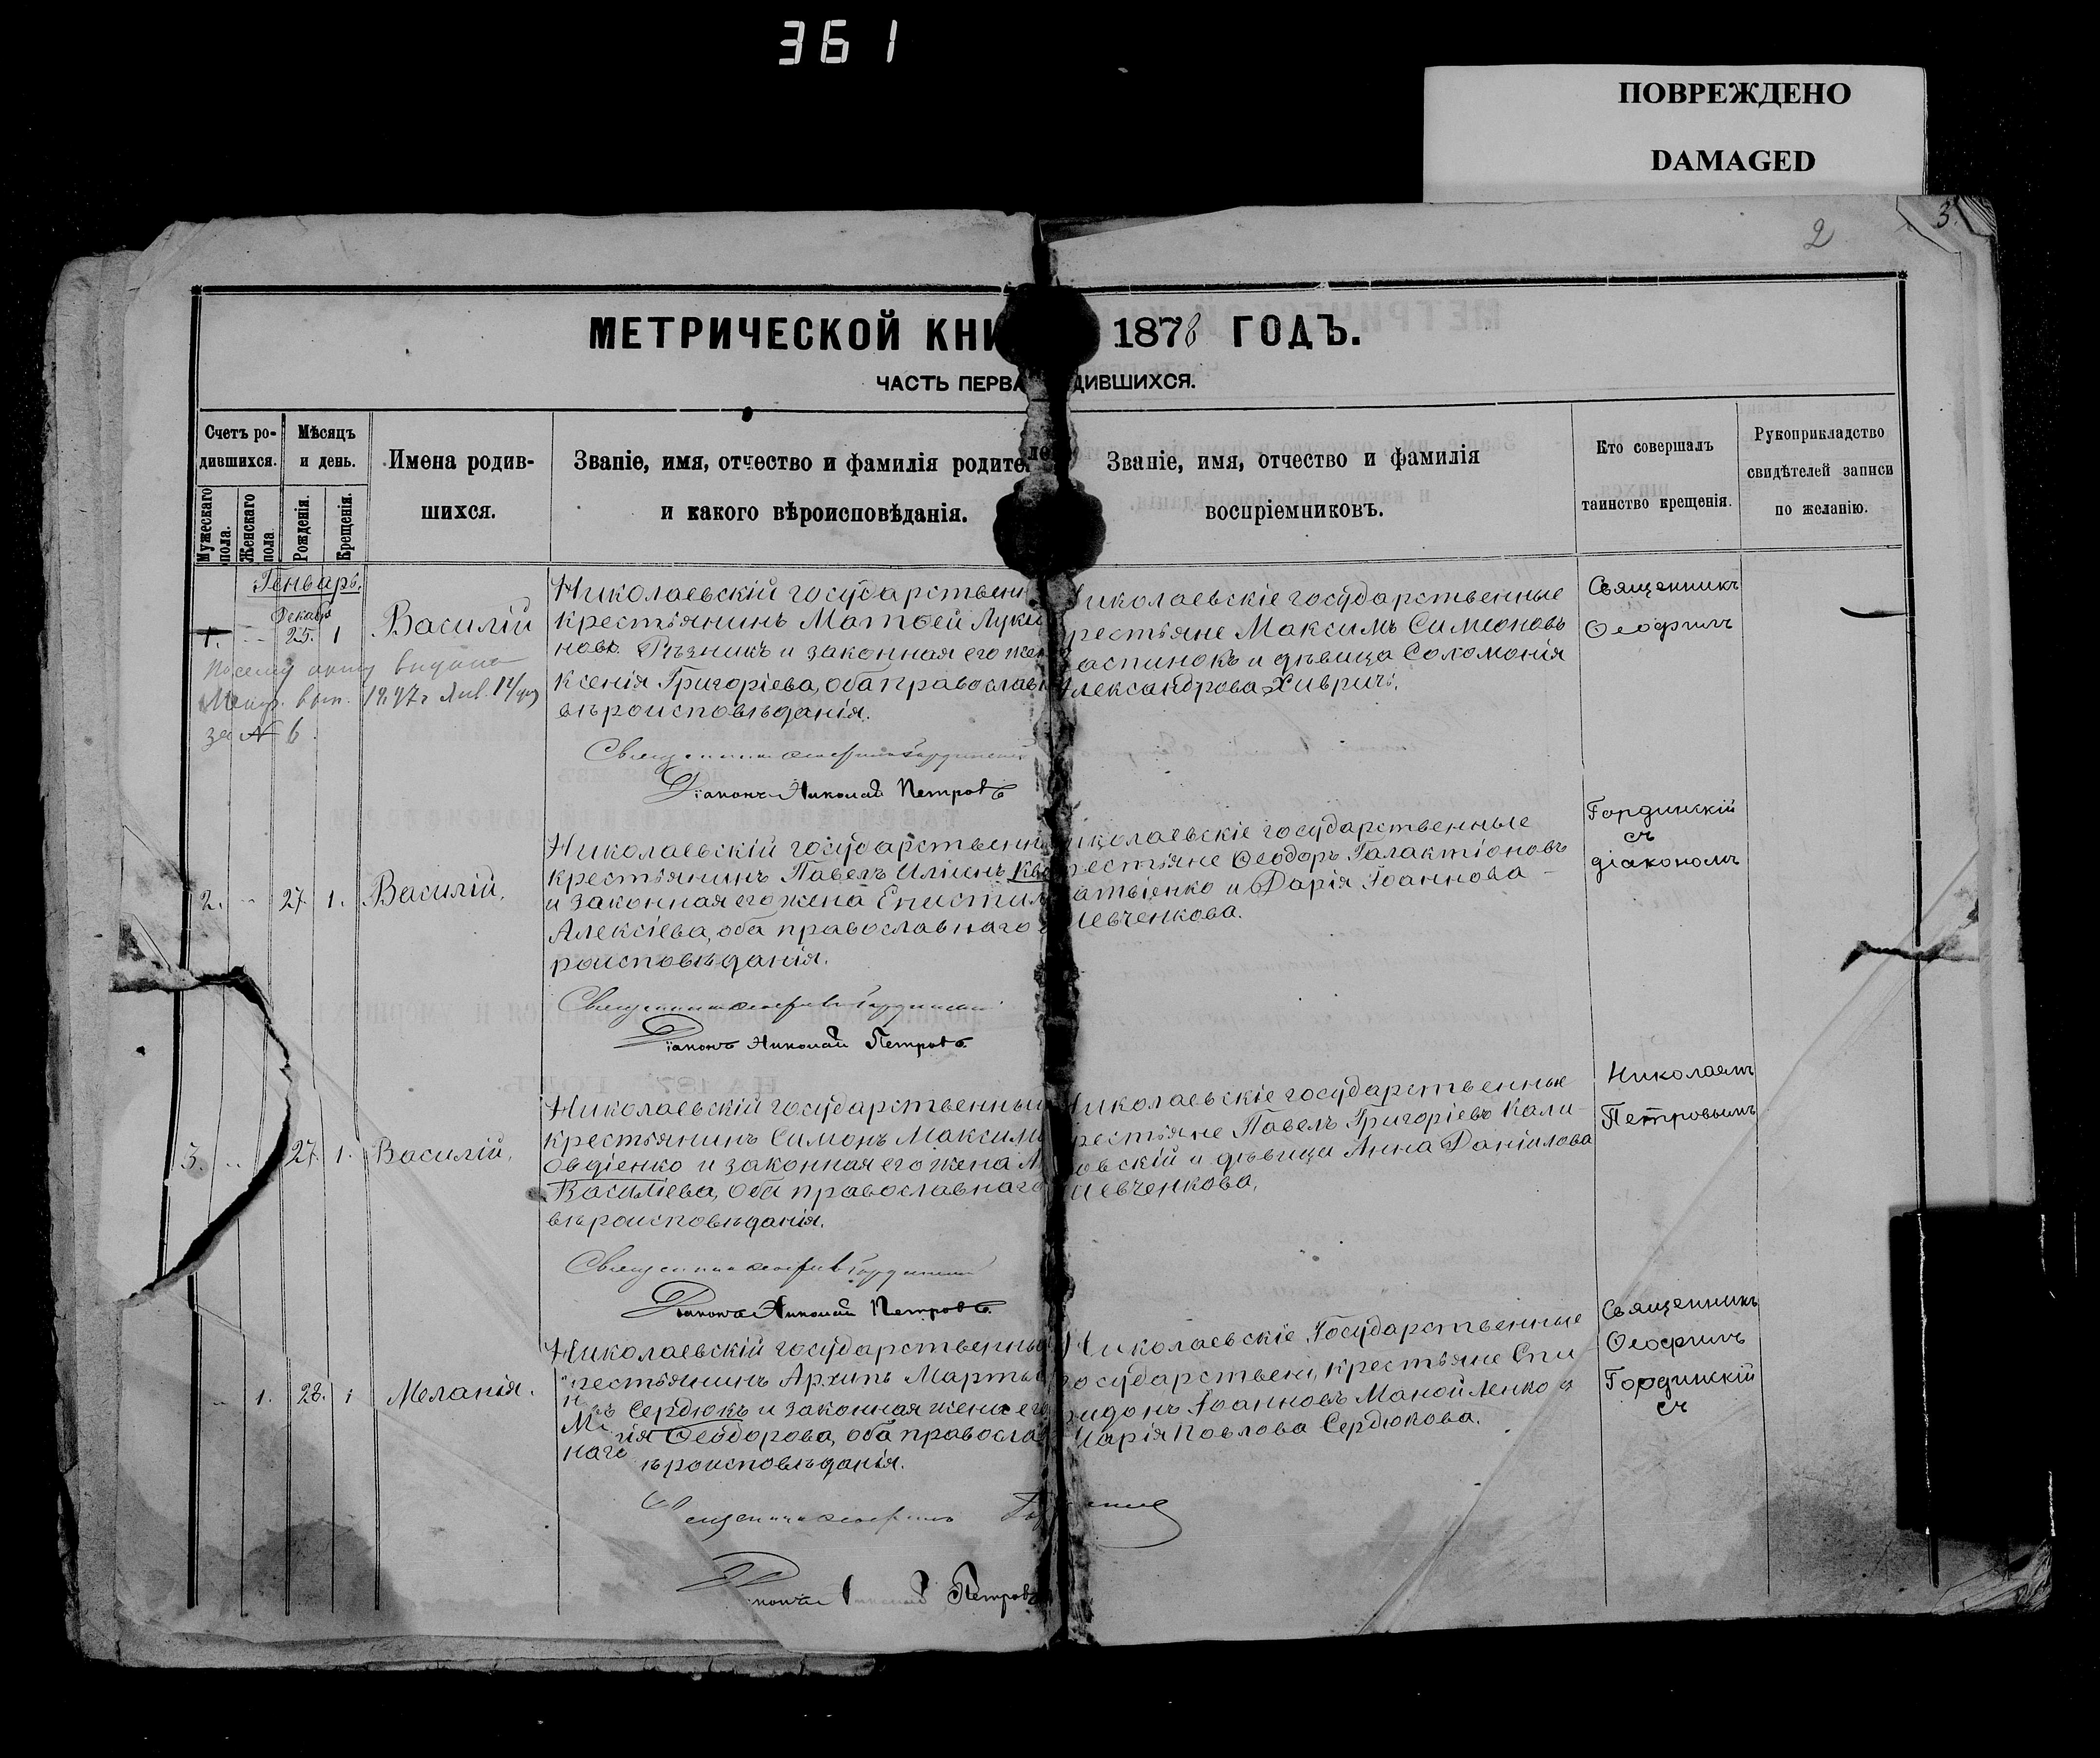 361
ПОВРЕЖДЕНО
DAMAGED
2
3.
МЕТРИЧЕСКОЙ КНИ 1878 ГОДЪ.
ЧАСТЬ ПЕРВА ДИВШИХСЯ.
Счетъ ро-
дившихся.
Мужескаго
пола.
Женскаго
пола.
Мѣсяцъ
и день.
Рожденія.
Крещенія.
Имена родив-
шихся.
Званіе, имя, отчество и фамилія родителей
и какого вѣроисповѣданія.
Званіе, имя, отчество и фамилія
воспріемниковъ.
Кто совершалъ
таинство крещенія.
Рукоприкладство
свидѣтелей записи
по желанію.
Генварь.
Декабр
1. 25. 1
Василій
По сему акту выдана
Метр. вып. 1897 г Янв. 14
за № 6.
Николаевскій государственн
крестьянинъ Матѳей Луки
новъ Рѣзникъ и законная его жен
Ксенія Григоріева, оба православн
вѣроисповѣданія.
Діаконъ Николай Петровъ
иколаевскіе государственные
рестьяне Максимъ Симеоновъ
аспинокъ и дѣвица Соломонія
лександрова Хивричъ.
Священникъ
Ѳеофилъ
2. 27. 1.
Василій.
Николаевскій государственн
крестьянинъ Павелъ Иліинъ
и законная его жена Епистим
Алексіева, оба православнаго
роисповѣданія.
Діаконъ Николай Петровъ
иколаевскіе государственные
рестьяне Ѳеодоръ Галактіоновъ
атвіенко и Дарія Іоаннова
Левченкова.
Гординскій
съ
діакономъ
3. 27. 1.
Василій.
Николаевскій государственный
крестьянинъ Симонъ Максим
Овдіенко и законная его жена
Василіева, оба православнаго
вѣроисповѣданія.
Діаконъ Николай Петровъ
иколаевскіе государственные
рестьяне Павелъ Григоріевъ Кали-
овскій и дѣвица Анна Даніилова
Шевченкова.
Николаемъ
Петровымъ
1. 28. 1
Меланія.
Николаевскій государственны
рестьянинъ Архипъ Марты
Сердюкъ и законная жена его
рія Ѳеодорова, оба православ
наго
ѣроисповѣданія.
Петровъ
Николаевскіе Государственные
осударствен. крестьяне Спи
ридонъ Іоанновъ Манойленко и
Марія Павлова Сердюкова.
Священникъ
Ѳеофилъ
Гординскій
съ